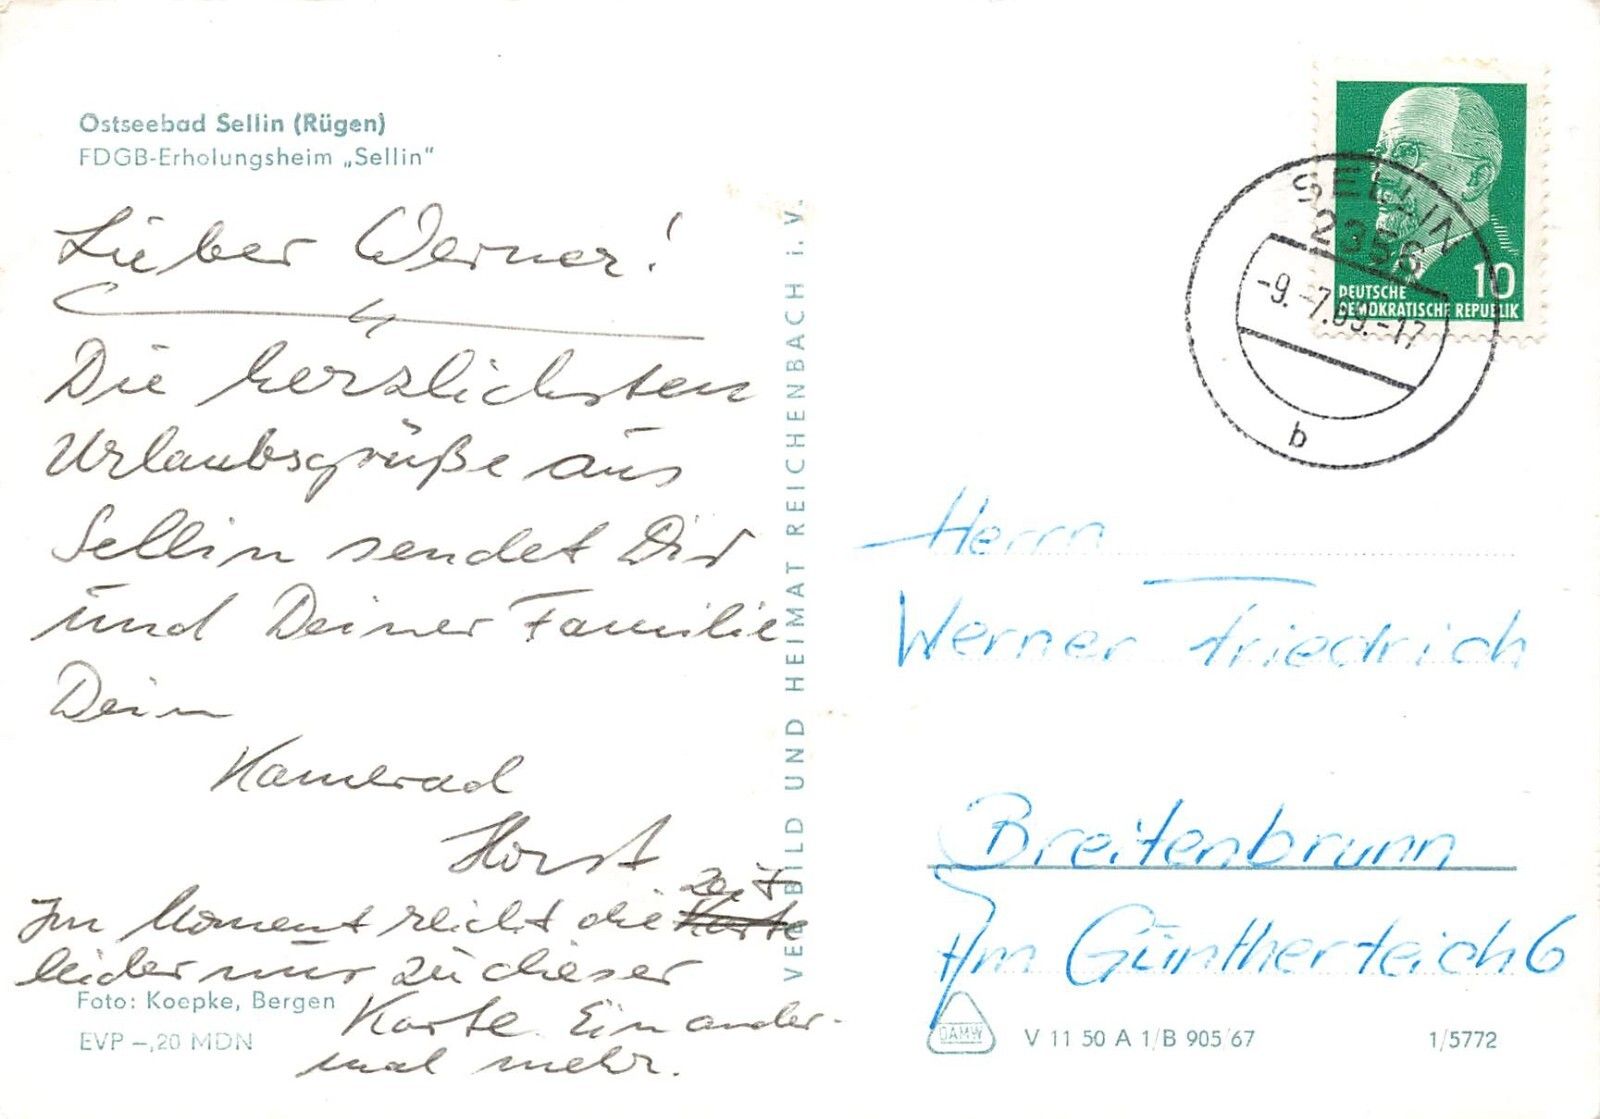 Ostseebad Sellin (Rügen)
FDGB-Erholungsheim „Sellin“
Lieber Werner!
Die herzlichsten
Urlaubsgrüße aus
Sellin sendet Dir
und Deiner Familie
Dein
Kamerad
Horst
Zeit
Im Moment reicht die Karte
leider nur zu dieser
Karte. Ein ander-
mal mehr.
Foto: Koepke, Bergen
EVP –,20 MDN
VEB BILD UND HEIMAT REICHENBACH i. V.
SELLIN
2356
-9.-7.69.-17
b
10
DEUTSCHE
DEMOKRATISCHE REPUBLIK
Herrn
Werner Friedrich
Breitenbrunn
Am Güntherteich 6
DAMW
V 11 50 A 1/B 905/67
1/5772